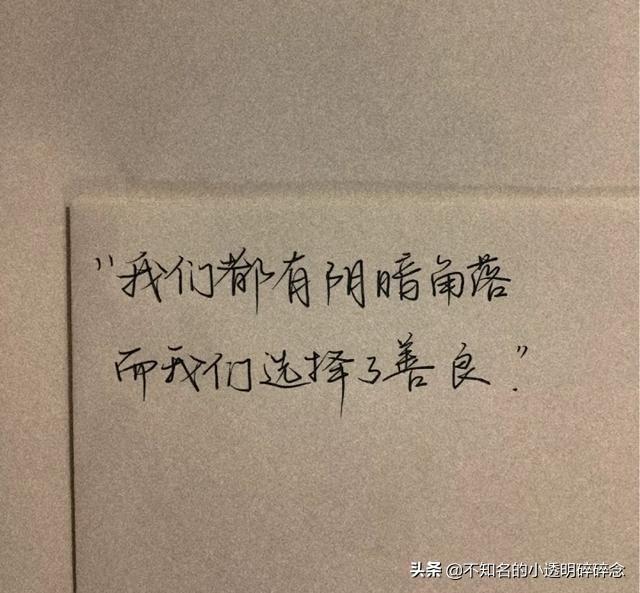 "我们都有阴暗角落
而我们选择了善良."
头条 @不知名的小透明碎碎念